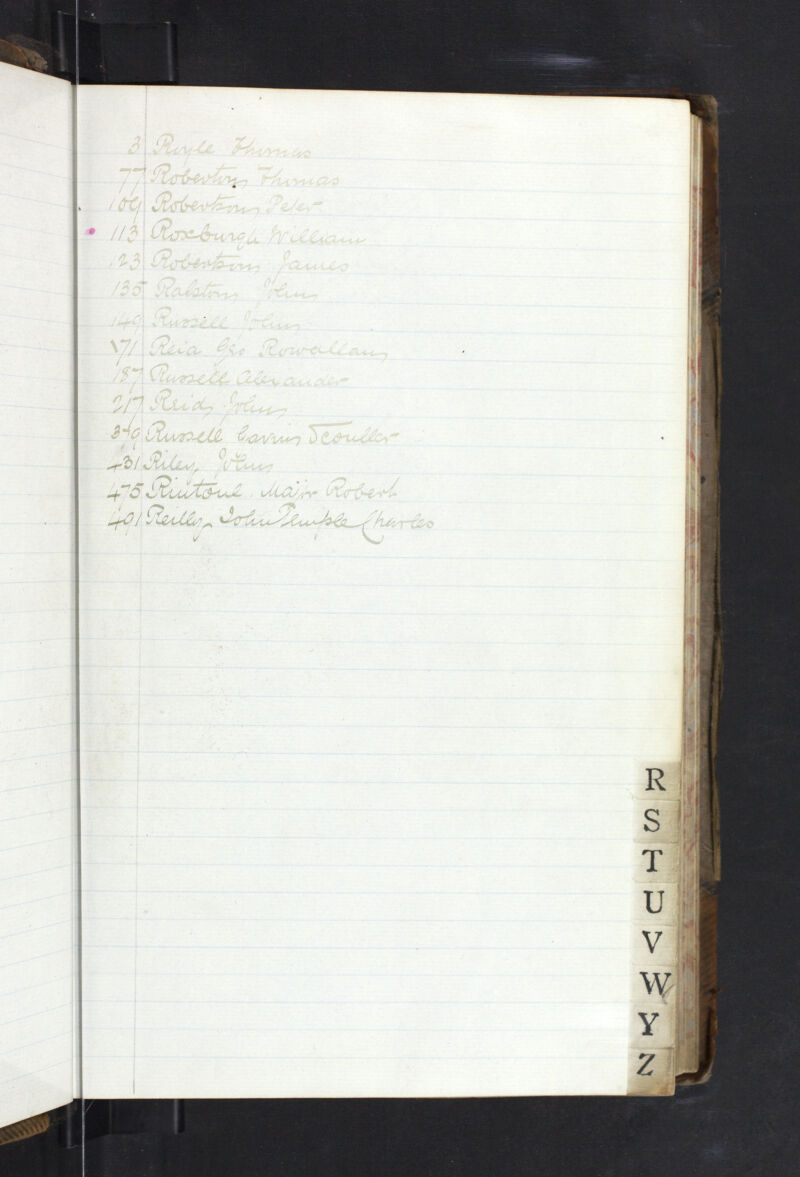 3 Royle Thomas
77 Robertson Thomas
109 Robertson Peter
113 Roxburgh William
123 Robertson James
135 Ralston John
149 Russell John
171 Reid Geo Rowallan
187 Russell Alexander
217 Reid John
349 Russell Scouller
431 Riley John
475 Rintoul Major Robert
491 Reilly John Temple Charles
R
S
T
U
V
W
Y
Z